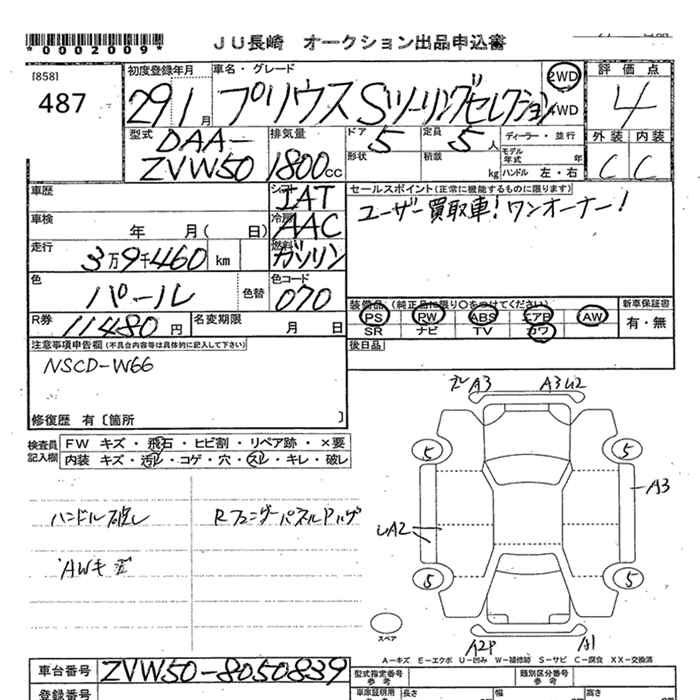 *0002009*
JU長崎 オークション出品申込書
[858]
487
初度登録年月
29 1月
車名・グレード
プリウス Sツーリングセレクション
2WD
4WD
評価点
4
型式
DAA-
ZVW50
排気量
1800cc
ドア
5
定員
5人
ディーラー・並行
モデル年式 年
形状
積載 kg
ハンドル 左・右
外装 内装
C C
車歴
シフト
IAT
セールスポイント(正常に機能するものに限ります)
ユーザー買取車!ワンオーナー!
車検 年 月( 日)
冷房
AAC
走行
3万9千460 km
燃料
ガソリン
色
パール
色替
色コード
070
装備品 (純正品に限り○をつけてください)
新車保証書
PS PW ABS エアB AW
有・無
SR ナビ TV カワ
R券
11480円
名変期限 月 日
後日品
注意事項申告欄(不具合内容等は具体的に記入して下さい)
NSCD-W66
修復歴 有〔箇所 〕
検査員記入欄
FW キズ・飛石・ヒビ割・リペア跡・×要
内装 キズ・汚れ・コゲ・穴・スレ・キレ・破レ
A3 A3U2
5 5
A3
A2
5 5
スペア
A2P A1
A=キズ E=エクボ U=凹み W=補修跡 S=サビ C=腐食 XX=交換済
車台番号
ZVW50-8050839
型式指定番号
参考
類別区分番号
参考
登録番号
車庫証明用
参考
長さ
幅
高さ